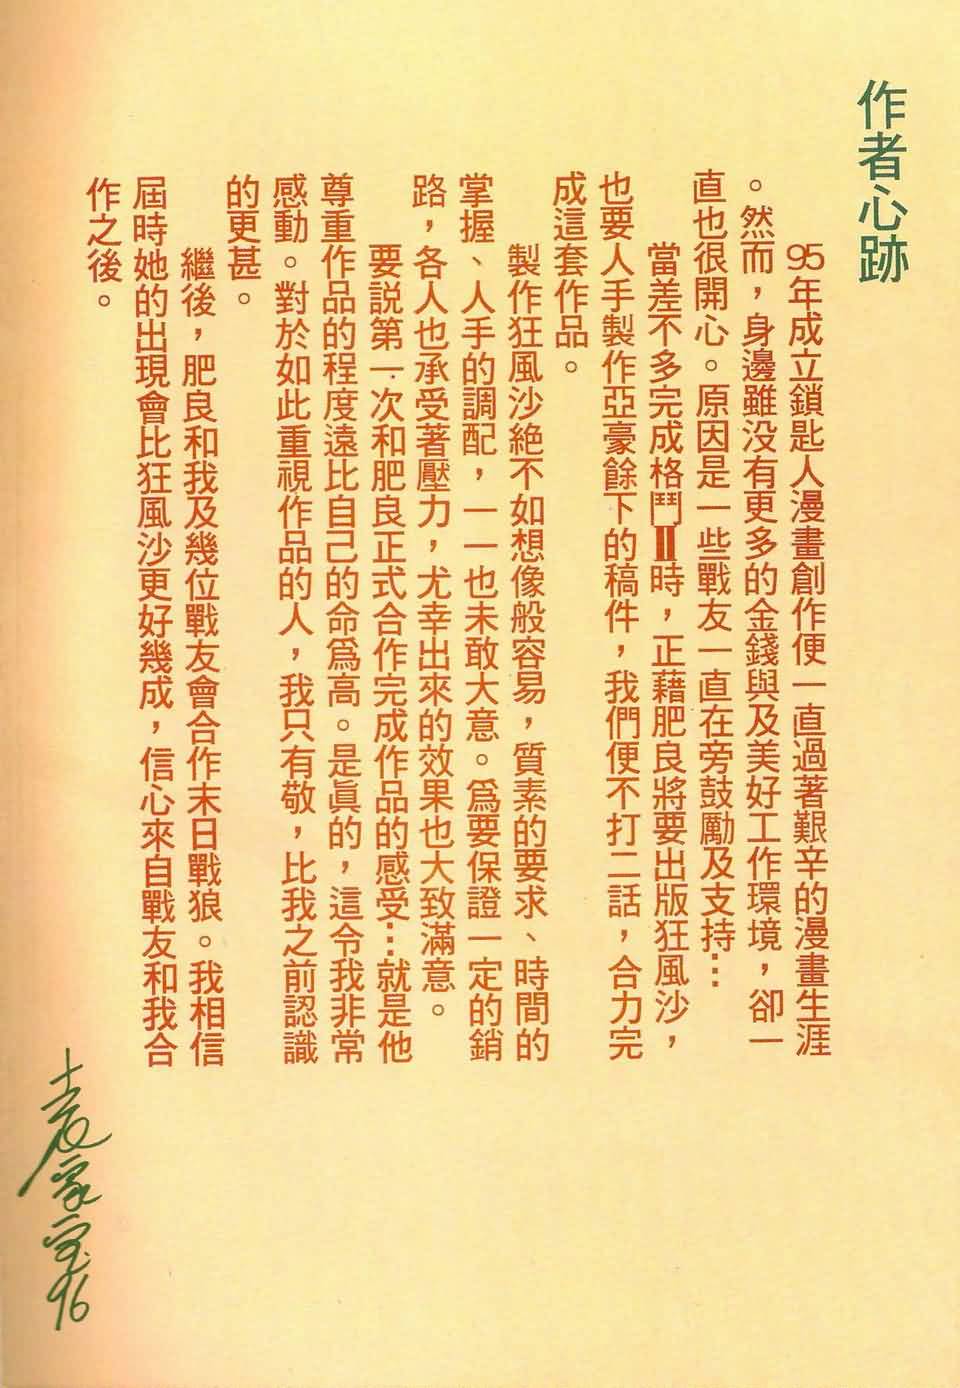 作者心跡
95年成立鎖匙人漫畫創作便一直過著艱辛的漫畫生涯
。然而，身邊雖没有更多的金錢與及美好工作環境，卻一
直也很開心。原因是一些戰友一直在旁鼓勵及支持…
當差不多完成格鬥Ⅱ時，正藉肥良將要出版狂風沙，
也要人手製作亞豪餘下的稿件，我們便不打二話，合力完
成這套作品。
製作狂風沙絶不如想像般容易，質素的要求、時間的
掌握、人手的調配，一一也未敢大意。爲要保證一定的銷
路，各人也承受著壓力，尤幸出來的效果也大致滿意。
要説第一次和肥良正式合作完成作品的感受…就是他
尊重作品的程度遠比自己的命爲高。是眞的，這令我非常
感動。對於如此重視作品的人，我只有敬，比我之前認識
的更甚。
繼後，肥良和我及幾位戰友會合作末日戰狼。我相信
屆時她的出現會比狂風沙更好幾成，信心來自戰友和我合
作之後。
袁家宝96